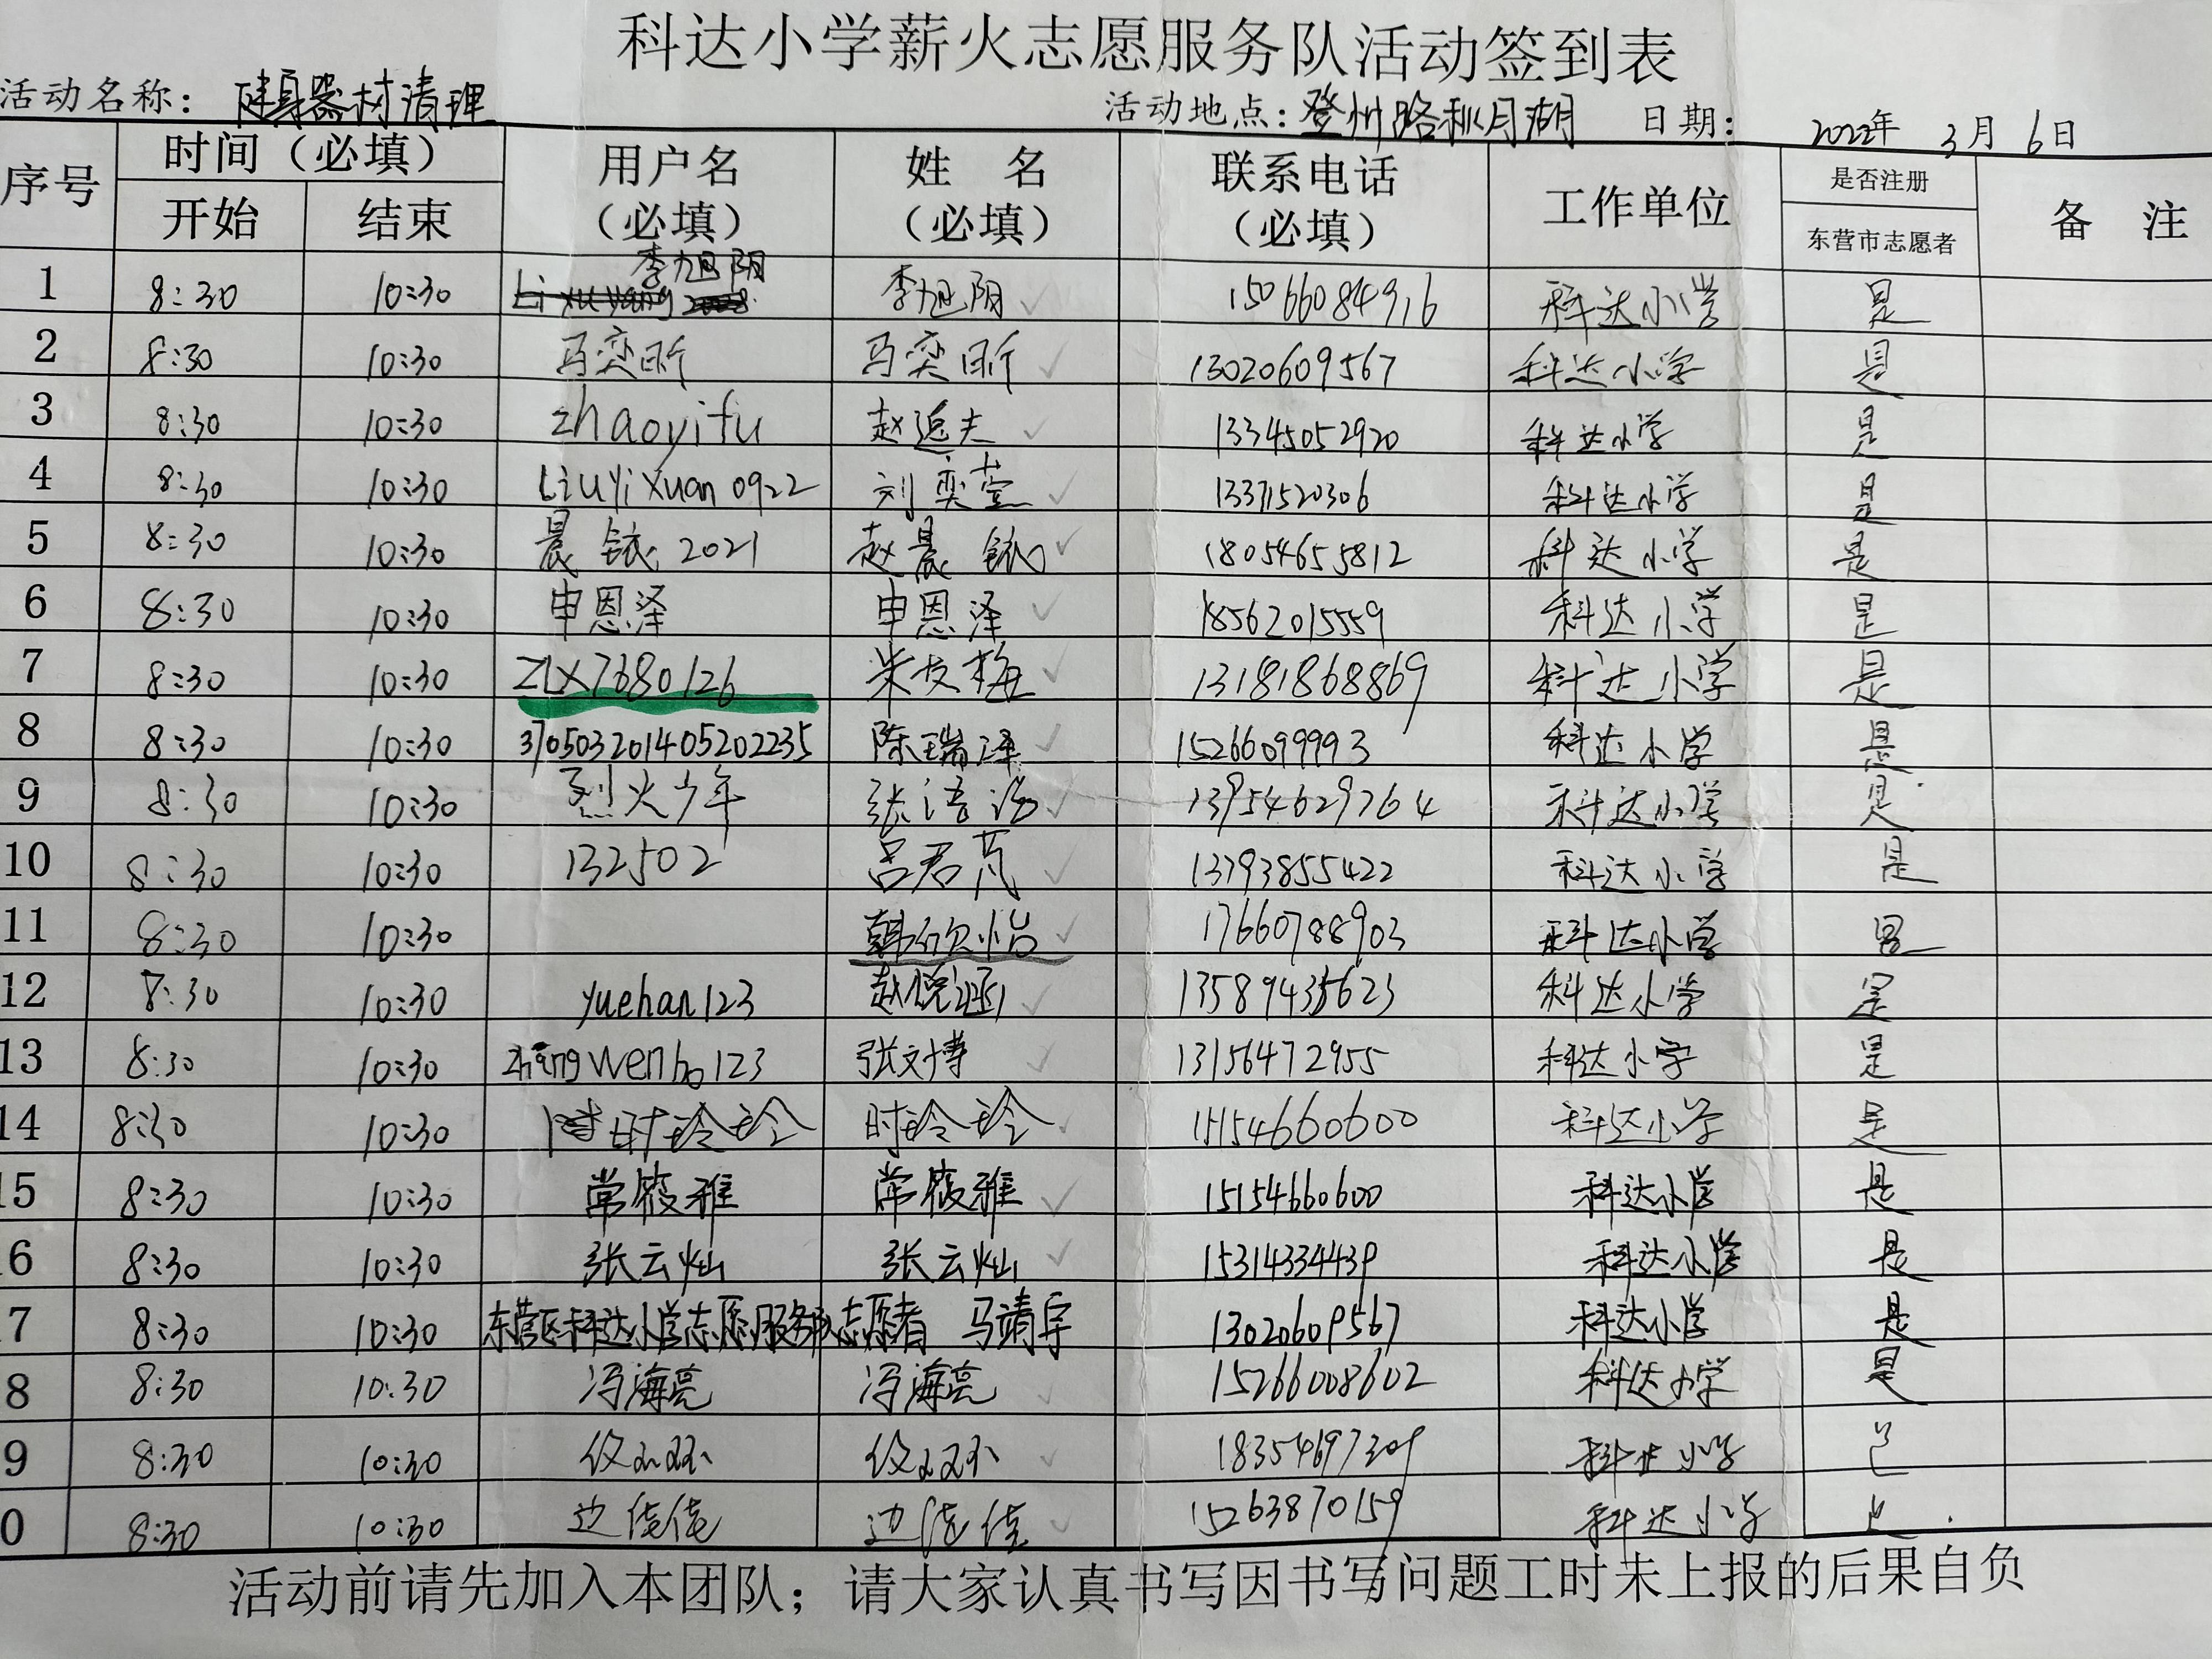 科达小学薪火志愿服务队活动签到表
活动名称：健身器材清理 活动地点：登州路秋月湖 日期： 2022年 3月 6日
序号 时间（必填） 用户名（必填） 姓 名（必填） 联系电话（必填） 工作单位 是否注册 备 注
开始 结束 东营市志愿者
李旭阳
1 8:30 10:30 李旭阳 15066084916 科达小学 是
2 8:30 10:30 马奕昕 马奕昕 13020609567 科达小学 是
3 8:30 10:30 zhaoyifu 赵逸夫 13345052920 科达小学 是
4 8:30 10:30 LiuYiXuan0922 刘奕萱 13371520306 科达小学 是
5 8:30 10:30 晨铱2021 赵晨铱 18054655812 科达小学 是
6 8:30 10:30 申恩泽 申恩泽 18562015559 科达小学 是
7 8:30 10:30 ZLX7680126 13181868869 科达小学 是
8 8:30 10:30 370503201405202235 陈瑞泽 15266099993 科达小学 是
9 8:30 10:30 烈火少年 张洁 13954629764 科达小学 是
10 8:30 10:30 132502 吕君芃 13793855422 科达小学 是
11 8:30 10:30 韩欣怡 17660788903 科达小学 是
12 8:30 10:30 yuehan123 赵悦涵 科达小学 是
13 8:30 10:30 zhangwenbo123 张文博 13156472955 科达小学 是
14 8:30 10:30 时玲玲 时玲玲 15154660600 科达小学 是
15 8:30 10:30 常筱雅 常筱雅 15154660600 科达小学 是
6 8:30 10:30 张云灿 张云灿 15314334439 科达小学 是
7 8:30 10:30 东营区科达小学志愿服务队志愿者 马靖宇 13020609567 科达小学 是
8 8:30 10:30 冯海亮 冯海亮 15266008602 科达小学 是
9 8:30 10:30 18354697309 科达小学
0 8:30 10:30 边佳佳 边佳佳 15263870159 科达小学
活动前请先加入本团队；请大家认真书写因书写问题工时未上报的后果自负